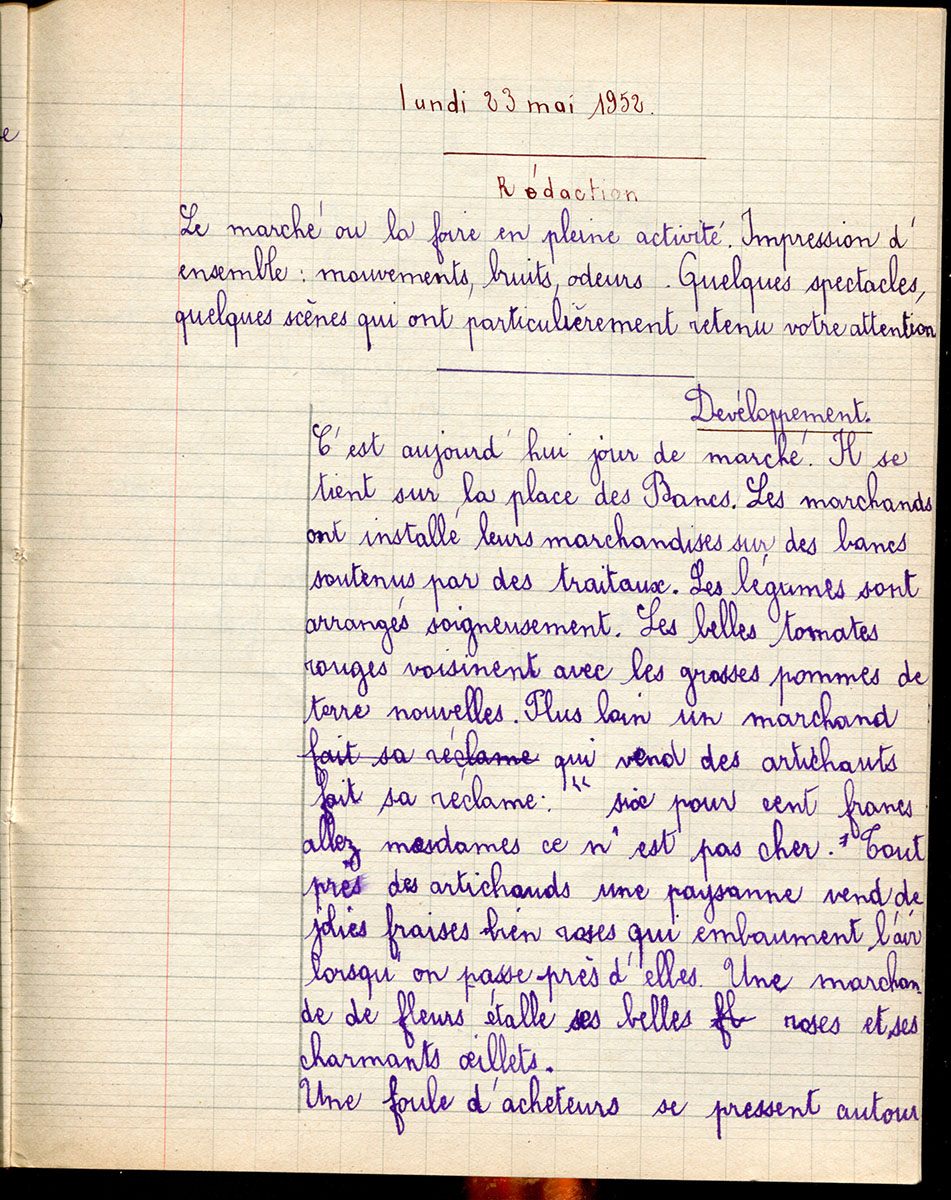 e
lundi 23 mai 1952.
Rédaction
Le marché ou la foire en pleine activité. Impression d'
ensemble : mouvements, bruits, odeurs. Quelques spectacles,
quelques scènes qui ont particulièrement retenu votre attention
Dévéloppement.
C'est aujourd'hui jour de marché. Il se
tient sur la place des Bancs. Les marchands
ont installé leurs marchandises sur des bancs
soutenus par des traitaux. Les légumes sont
arrangés soigneusement. Les belles tomates
rouges voisinent avec les grosses pommes de
terre nouvelles. Plus loin un marchand
fait sa réclame qui vend des artichauts
fait sa réclame : " six pour cent francs
allez mesdames ce n'est pas cher. " Tout
près des artichauds une paysanne vend de
jolies fraises bien roses qui embaument l'air
lorsqu'on passe près d'elles. Une marchan
de de fleurs étalle ses belles fl roses et ses
charmants œillets.
Une foule d'acheteurs se pressent autour